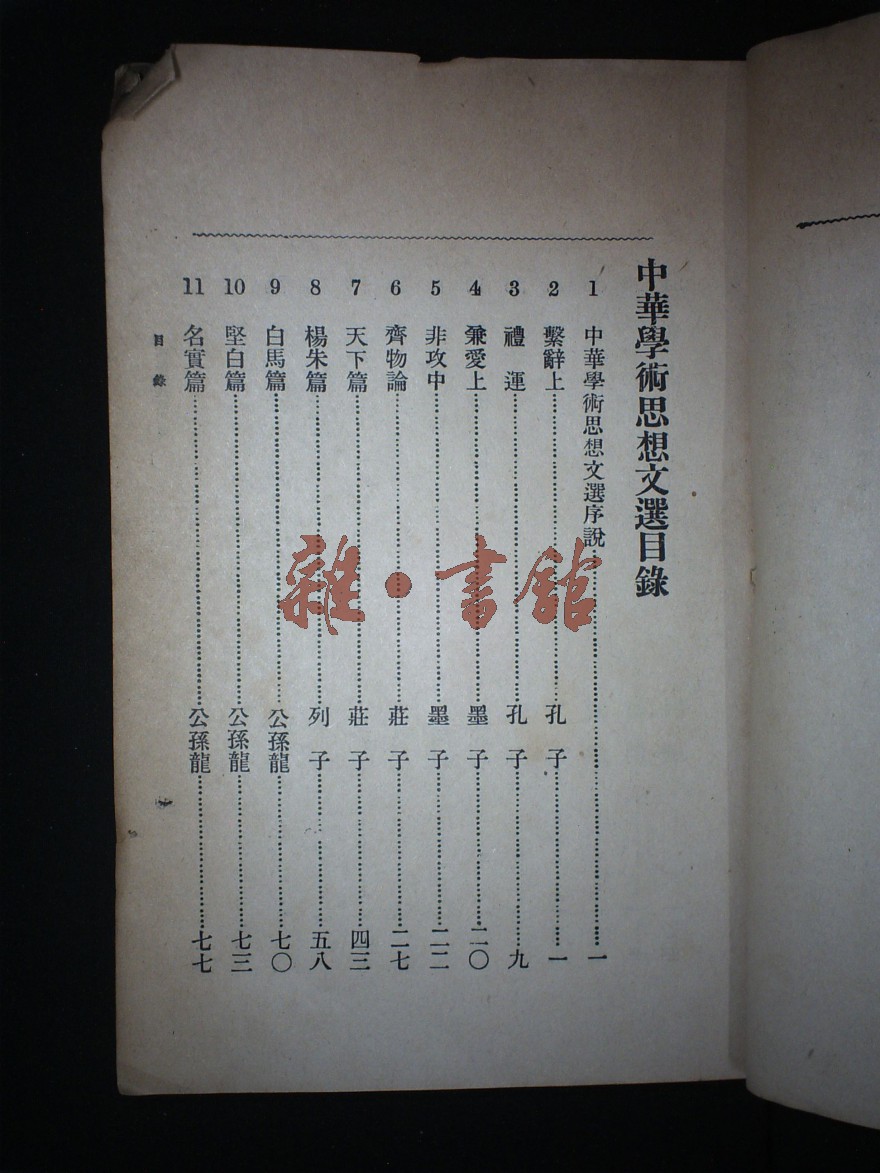 中華學術思想文選目錄
1 中華學術思想文選序說……一
2 繫辭上……孔子……一
3 禮運……孔子……九
4 兼愛上……墨子……二〇
5 非攻中……墨子……二二
6 齊物論……莊子……二七
7 天下篇……莊子……四三
8 楊朱篇……列子……五八
9 白馬篇……公孫龍……七〇
10 堅白篇……公孫龍……七三
11 名實篇……公孫龍……七七
目錄
雜·書館